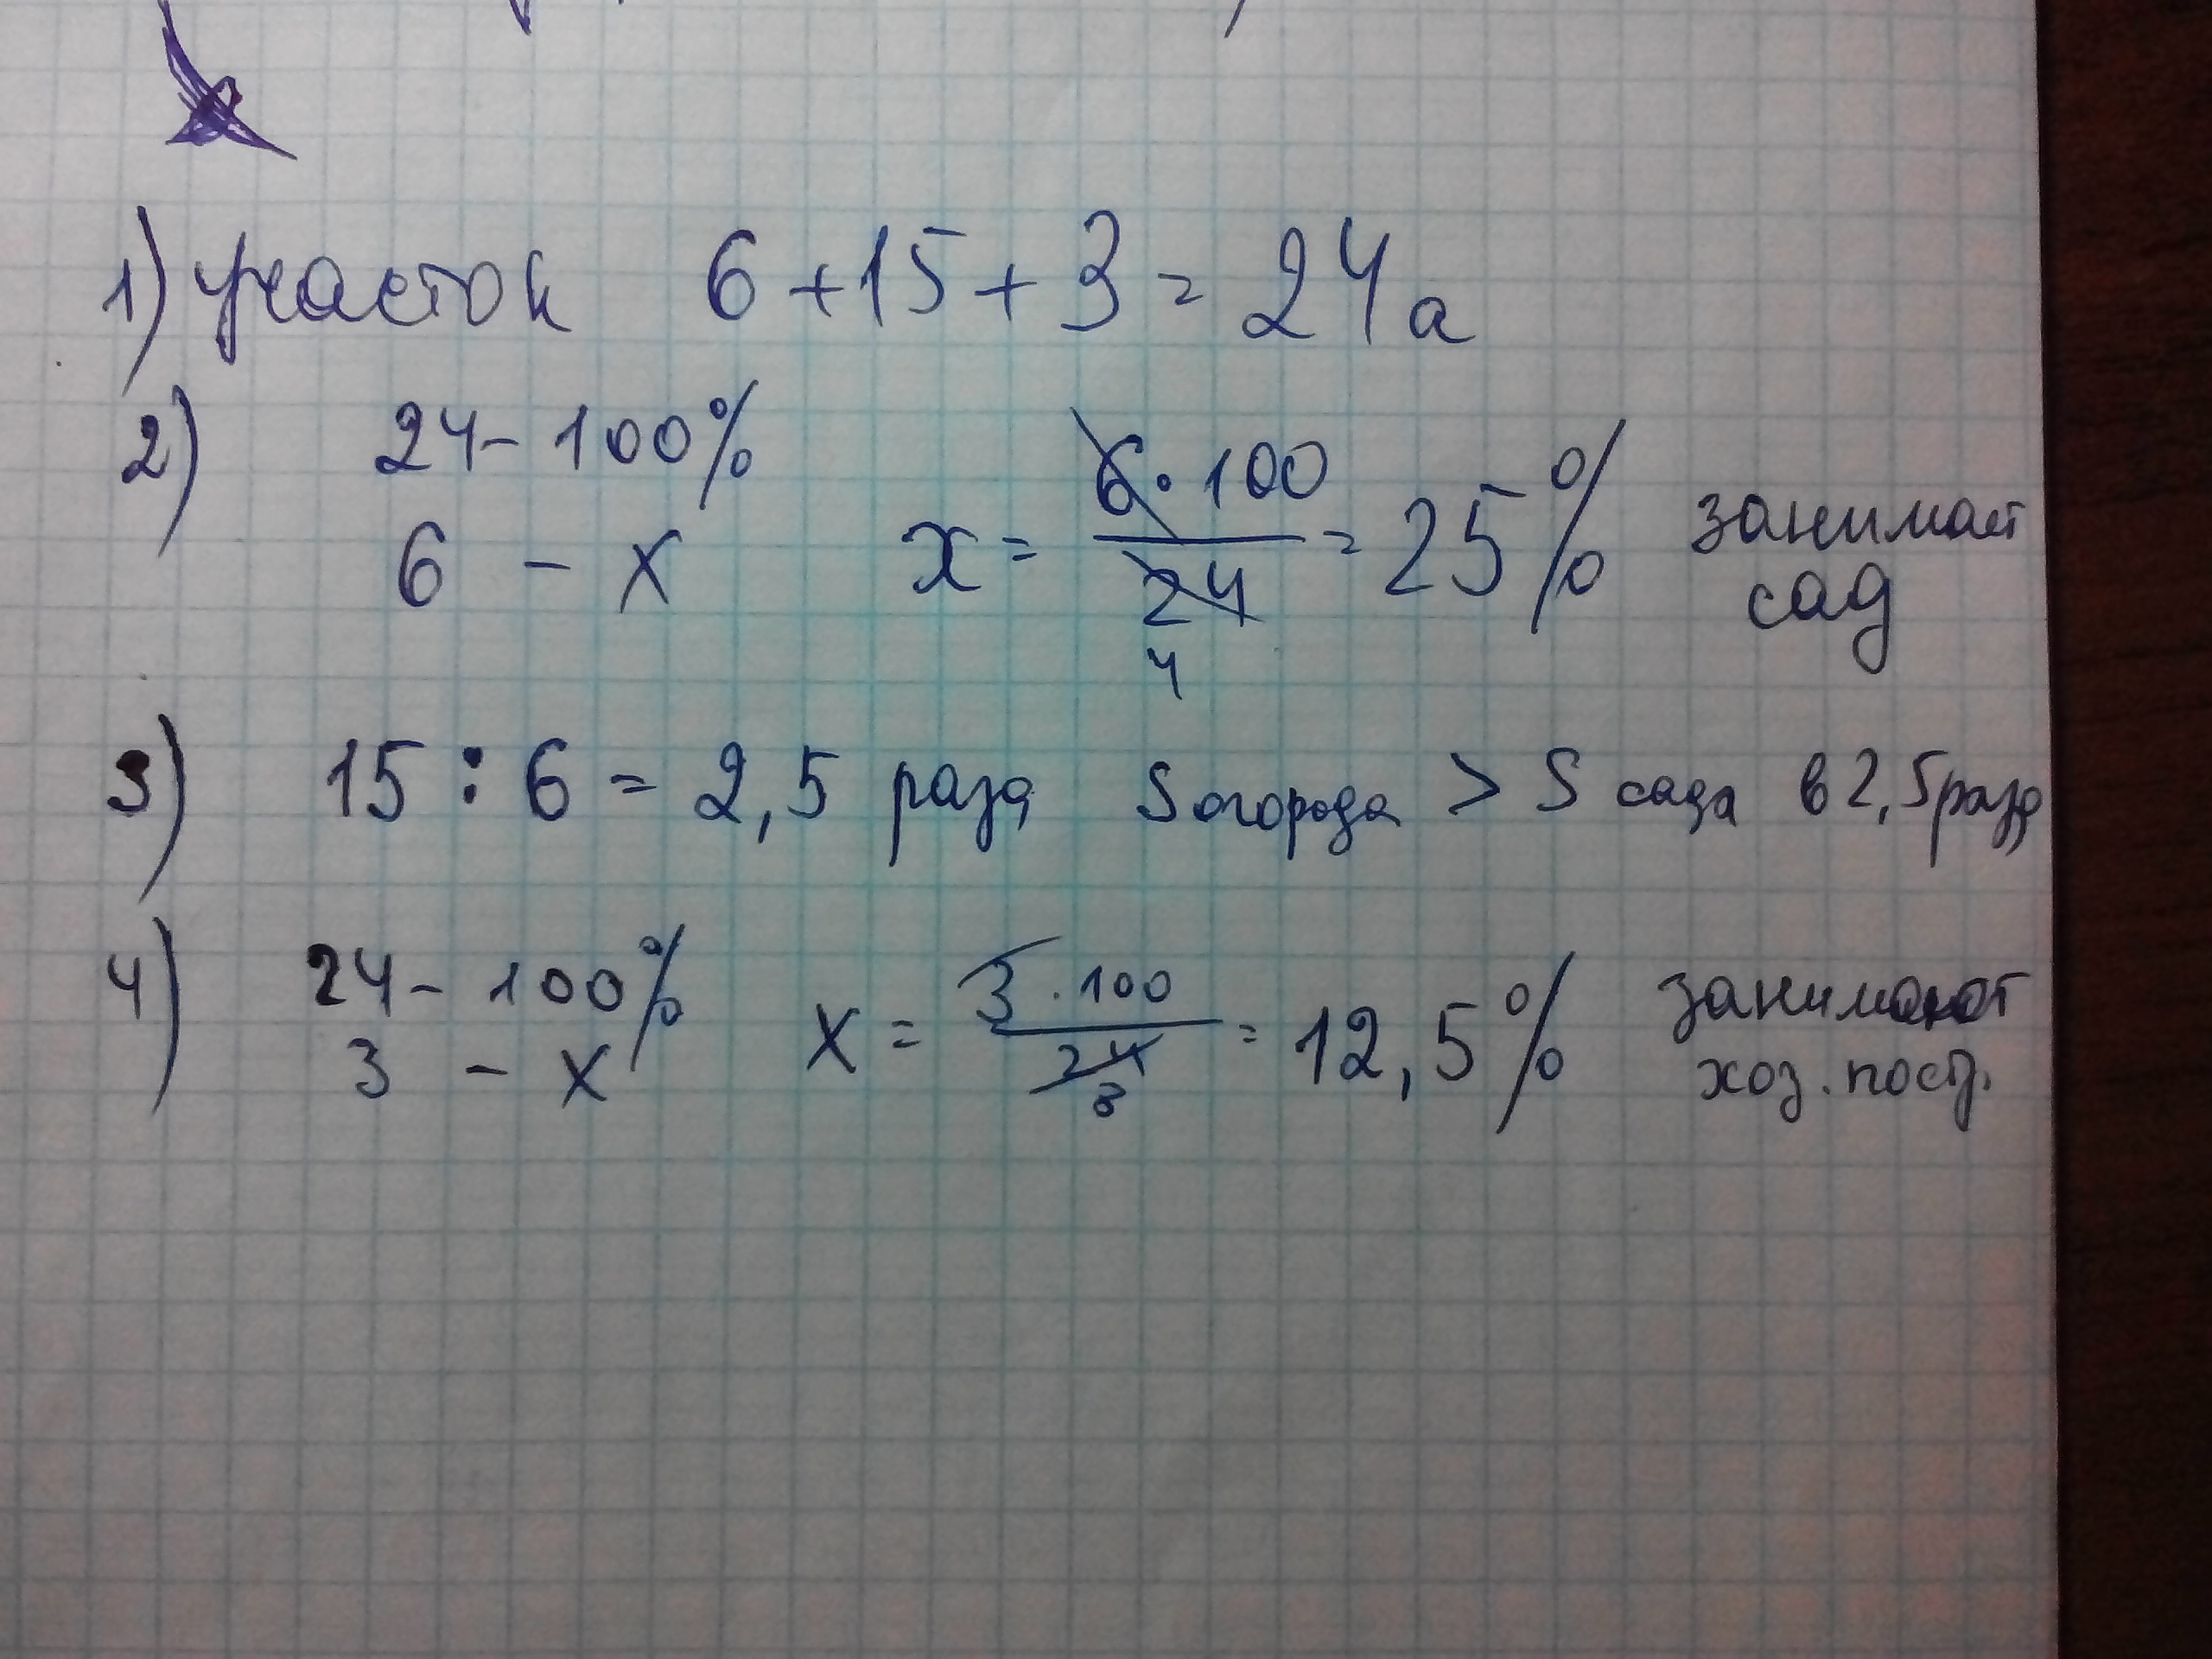 1) участок 6 + 15 + 3 = 24 а
2) 24 - 100%
6 - х х = 6 · 100 / 24 = 25% занимает
4 сад
3) 15 : 6 = 2,5 раза S огорода > S сада в 2,5 раза
4) 24 - 100%
3 - х х = 3 · 100 / 24 = 12,5% занимают
8 хоз. постр.